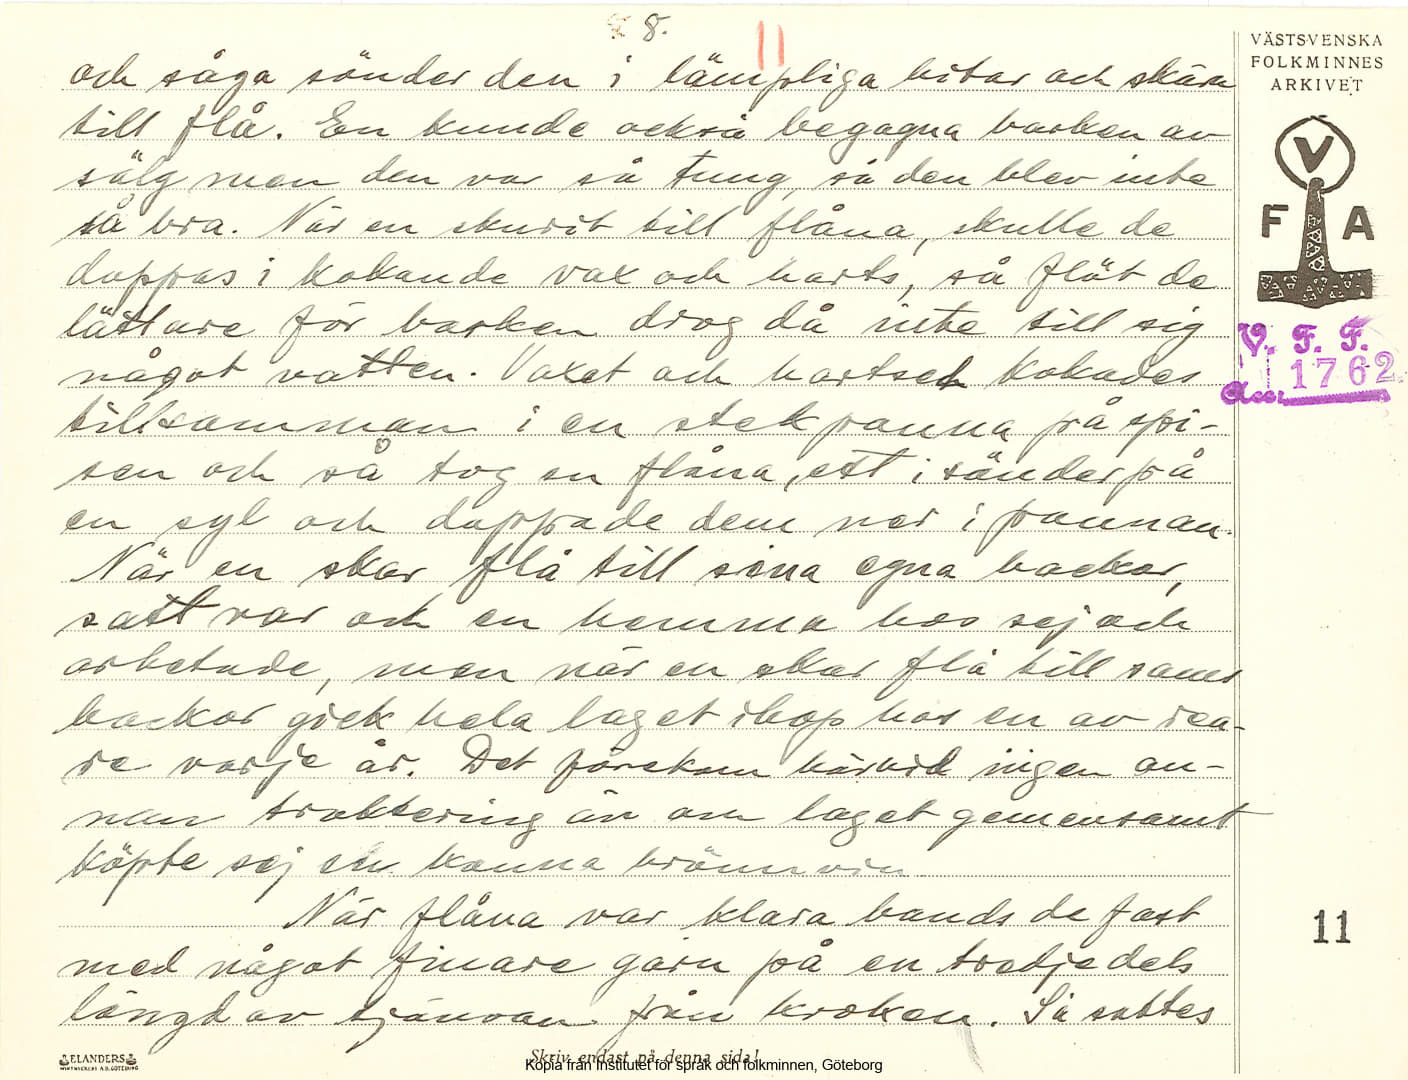 8.
11
och såga sönder den i lämpliga bitar och skära
till flå. En kunde också begagna barken av
sälg men den var så tung, så den blev inte
så bra. När en skurit till flåna, skulle de
doppas i kokande vax och harts, så flöt de
lättare för barken drog då inte till sig
något vatten. Vaxet och hartset kokades
tillsamman i en stekpanna på spi-
sen och så tog en flåna, ett i sänder på
en syl och doppade dem ner i pannan.
När en skar flå till sina egna backor,
satt var och en hemma hos sej och
arbetade, men när en skar flå till sams
backor gick hela laget ihop hos en av
re varje år. Det förekom härvid ingen an-
nan traktering än om laget gemensamt
köpte sej en kanna brännvin
När flåna var klara bands de fast
med något finare garn på en tredjedels
längd av tjänvan från kroken. Så sattes
VÄSTSVENSKA
FOLKMINNES
ARKIVET
V
F A
V. F. F.
1762
Acc.
11
ELANDERS
Skriv endast på denna sida!
Kopia från Institutet för språk och folkminnen, Göteborg